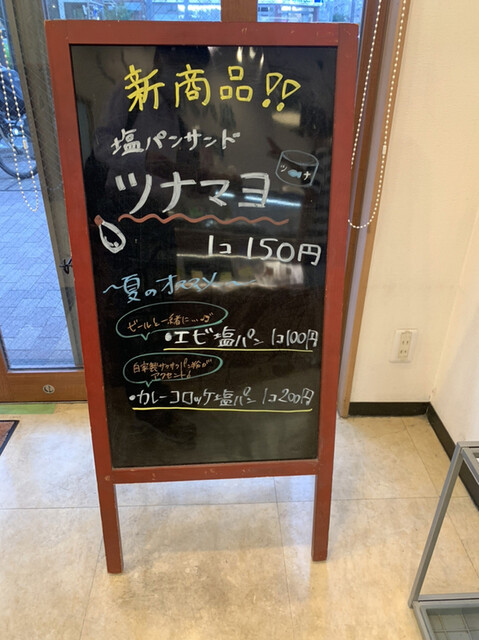 新商品!!
塩パンサンド
ツナマヨ
ツナ
1コ 150円
〜夏のオススメ〜
ビールと一緒に…♪
・エビ塩パン 1コ100円
自家製サクサクパン粉が
アクセント♪
・カレーコロッケ塩パン 1コ200円